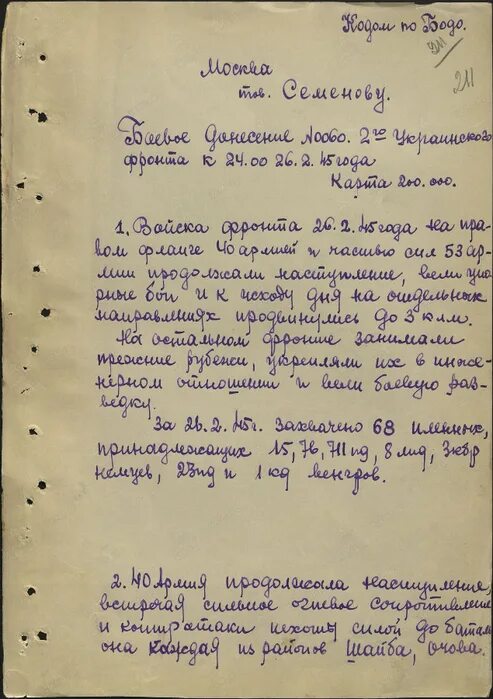 Кодом по Бодо.
211
211
Москва
тов. Семенову.
Боевое донесение №0060. 2го Украинского
фронта к 24.00 26.2.45 года
Карта 200.000.
1. Войска фронта 26.2.45 года на пра-
вом фланге 40 армией и частью сил 53 ар-
мии продолжали наступление, вели упор-
ные бои и к исходу дня на отдельных
направлениях продвинулись до 3 клм.
На остальном фронте занимали
прежние рубежи, укрепляли их в инже-
нерном отношении и вели боевую раз-
ведку.
За 26.2.45г. захвачено 68 пленных,
принадлежащих 15, 76, 711 пд, 8 лпд, 3 кбр
немцев, 23пд и 1 кд венгров.
2. 40 Армия продолжала наступление,
встречая сильное огневое сопротивление
и контратаки пехоты силой до баталь-
она каждая из районов Шайба, Очова.